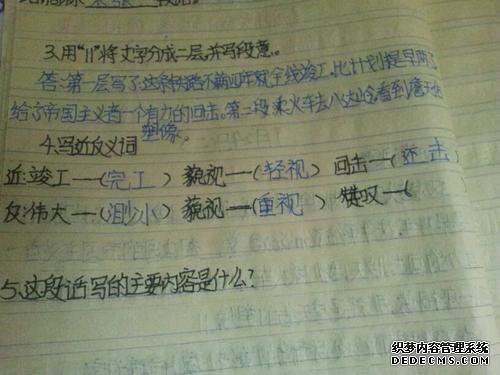 3.用"||"将文字分成二层,并写段意。
答:第一层写了这条铁路不满四年就全线竣工,比计划提早两
给了帝国主义者一个有力的回击。第二段乘火车去八达岭,看到詹天佑
塑像。
4.写近反义词
近:竣工—(完工) 藐视—(轻视) 回击—(还击)
反:伟大—(渺小) 藐视—(重视) 赞叹—(
5.这段话写的主要内容是什么?
织梦内容管理系统
DEDECMS.COM